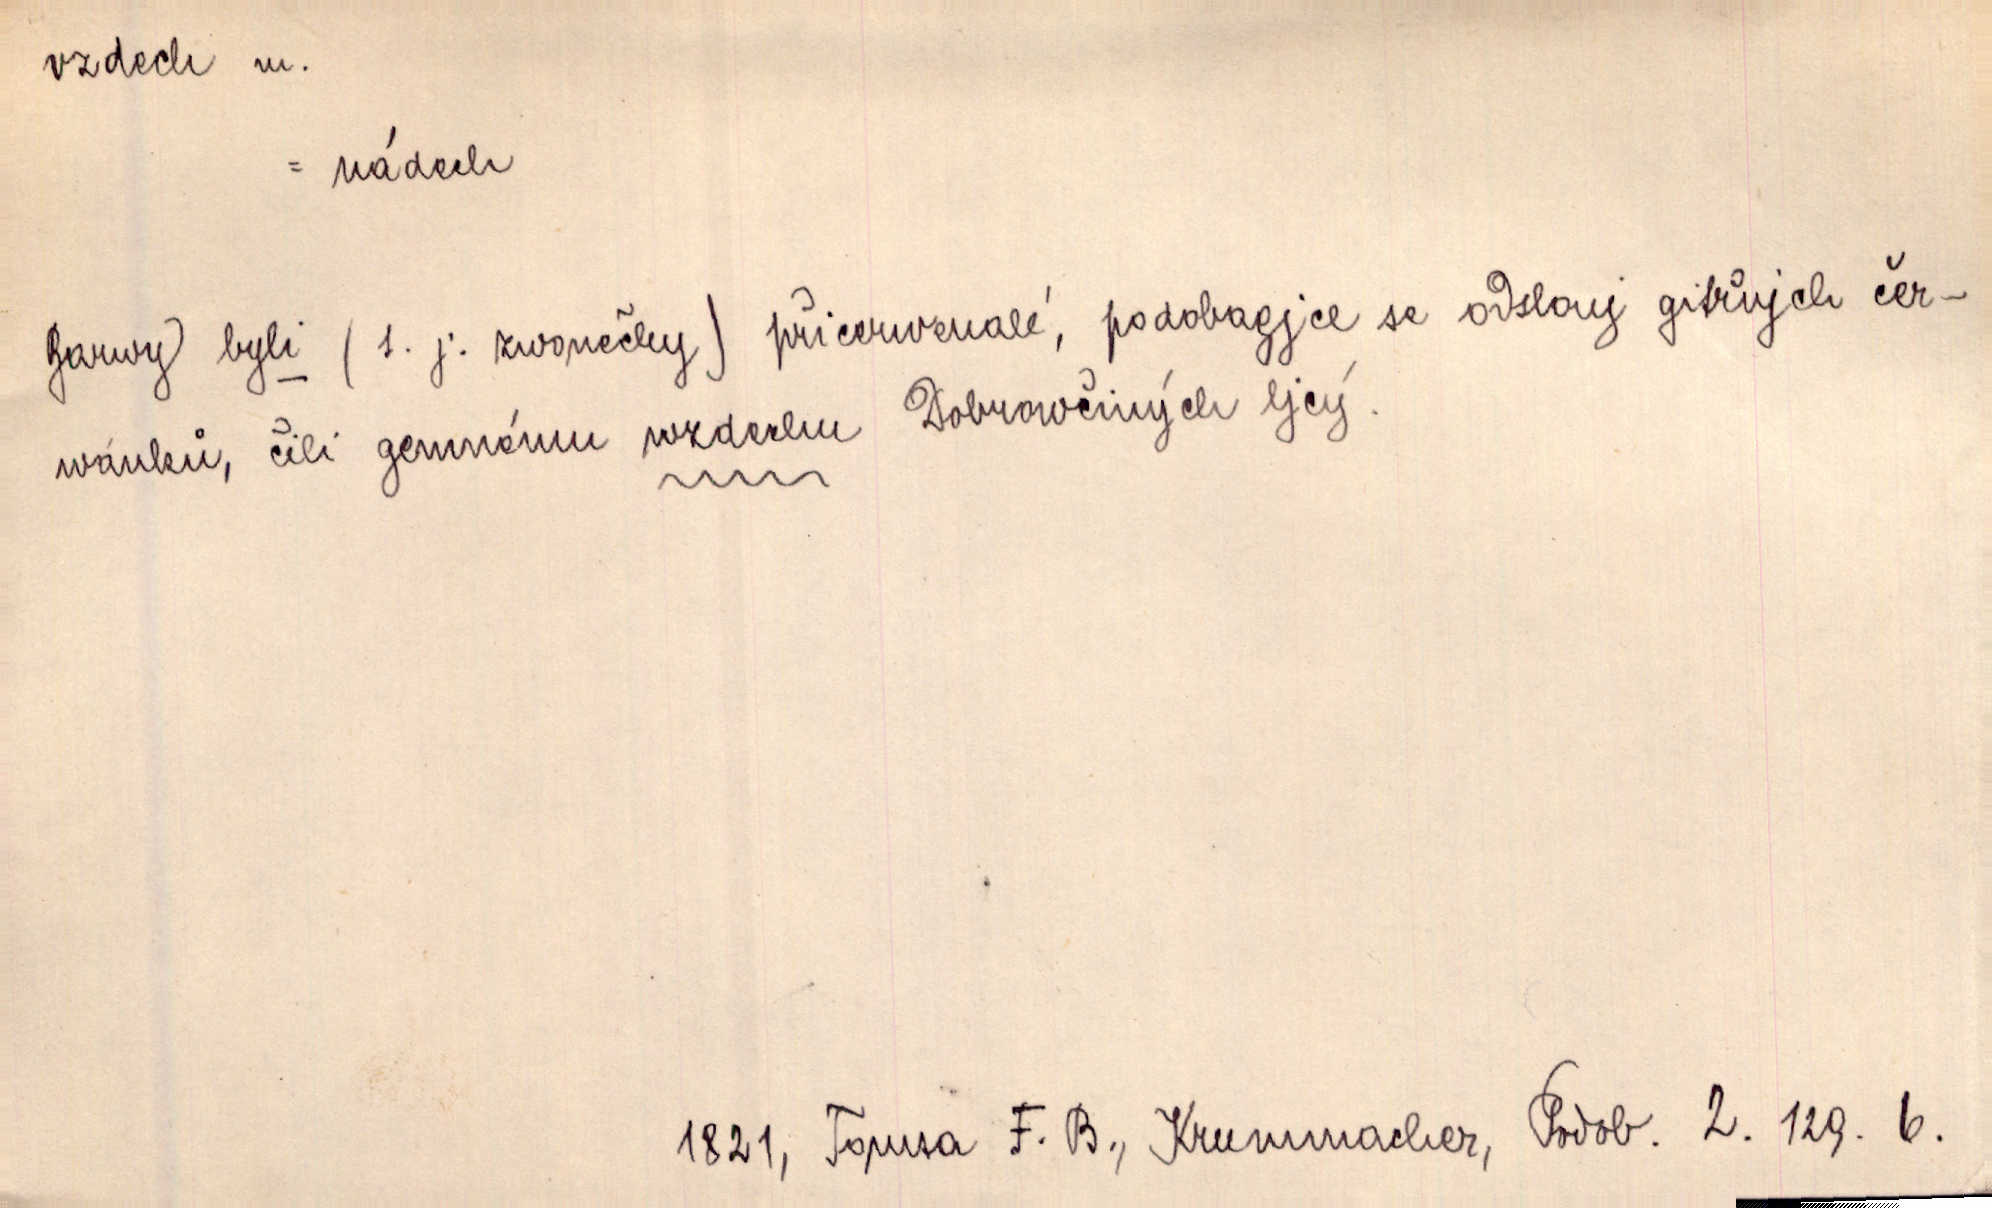 vzdech m.
= nádech
Barwy byli (t. j. zwonečky) přičerwenalé, podobagjce se odslonj gitřnjch čer-
wánků, čili gemnému wzdechu Dobrowčiných ljcý.
1821, Tomsa F. B., Krummacher, Podob. 2. 129. b.